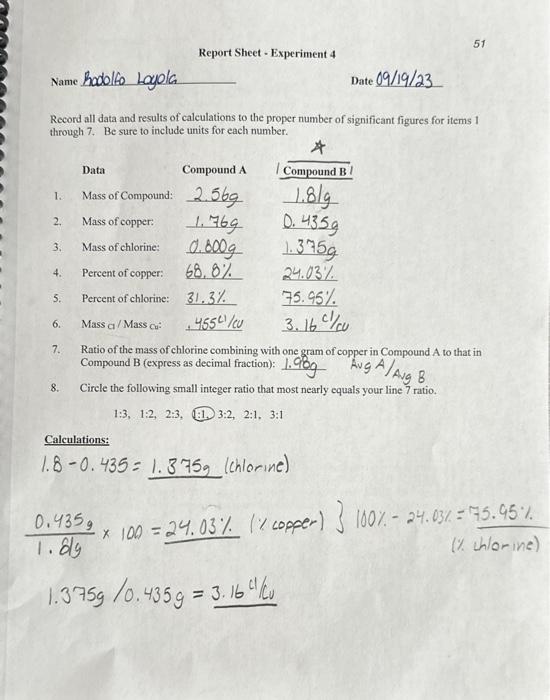 51
Report Sheet - Experiment 4
Name Rodolfo Loyola Date 09/19/23
Record all data and results of calculations to the proper number of significant figures for items 1
through 7. Be sure to include units for each number.
Data Compound A Compound B
1. Mass of Compound: 2.56g 1.81g
2. Mass of copper: 1.76g 0.435g
3. Mass of chlorine: 0.800g 1.375g
4. Percent of copper: 68.8% 24.03%
5. Percent of chlorine: 31.3% 75.95%
6. Mass Cl / Mass Cu: .455 Cl/Cu 3.16 Cl/Cu
7. Ratio of the mass of chlorine combining with one gram of copper in Compound A to that in
Compound B (express as decimal fraction): 1.98g Avg A/Avg B
8. Circle the following small integer ratio that most nearly equals your line 7 ratio.
1:3, 1:2, 2:3, 1:1, 3:2, 2:1, 3:1
Calculations:
1.8-0.435 = 1.375g (chlorine)
0.435g
1.81g
× 100 = 24.03% (% copper) } 100% - 24.03% = 75.95%
(% chlorine)
1.375g /0.435g = 3.16 Cl/Cu